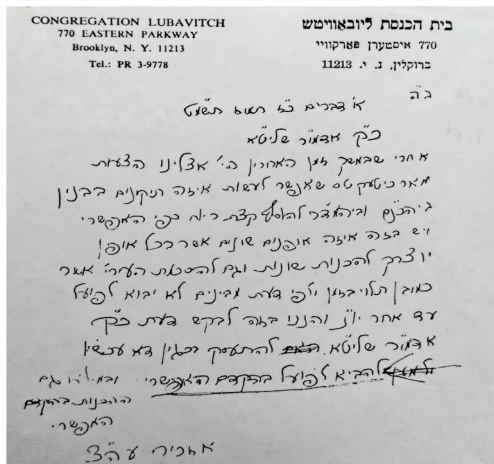 CONGREGATION LUBAVITCH
770 EASTERN PARKWAY
Brooklyn, N. Y. 11213
Tel.: PR 3-9778
בית הכנסת ליובאוויטש
770 איסטערן פארקוויי
ברוקלין, נ. י. 11213
ב"ה
א' דברים כ"ז תמוז תשמ"ט
כ"ק אדמו"ר שליט"א
אחרי שבמשך זמן האחרון הי' אצלינו הצעות
שאפשר לעשות איזה תיקונים בבנין
להוסיף קצת ריוח כפי האפשרי
ויש בזה איזה אופנים שונים אשר בכל אופן
יוצרך להכנות שונות וגם להסכמת העירי' אשר
כמובן תלוי בזמן ולפי דעת מבינים לא יבוא לפועל
עד אחר יו"ט והננו בזה לבקש דעת כ"ק
אדמו"ר שליט"א להתעסק בכגון דא עכשיו
להביא לפועל בהקדם האפשרי
וגם
ההכנות בהקדם
האפשרי
אזכיר עה"צ